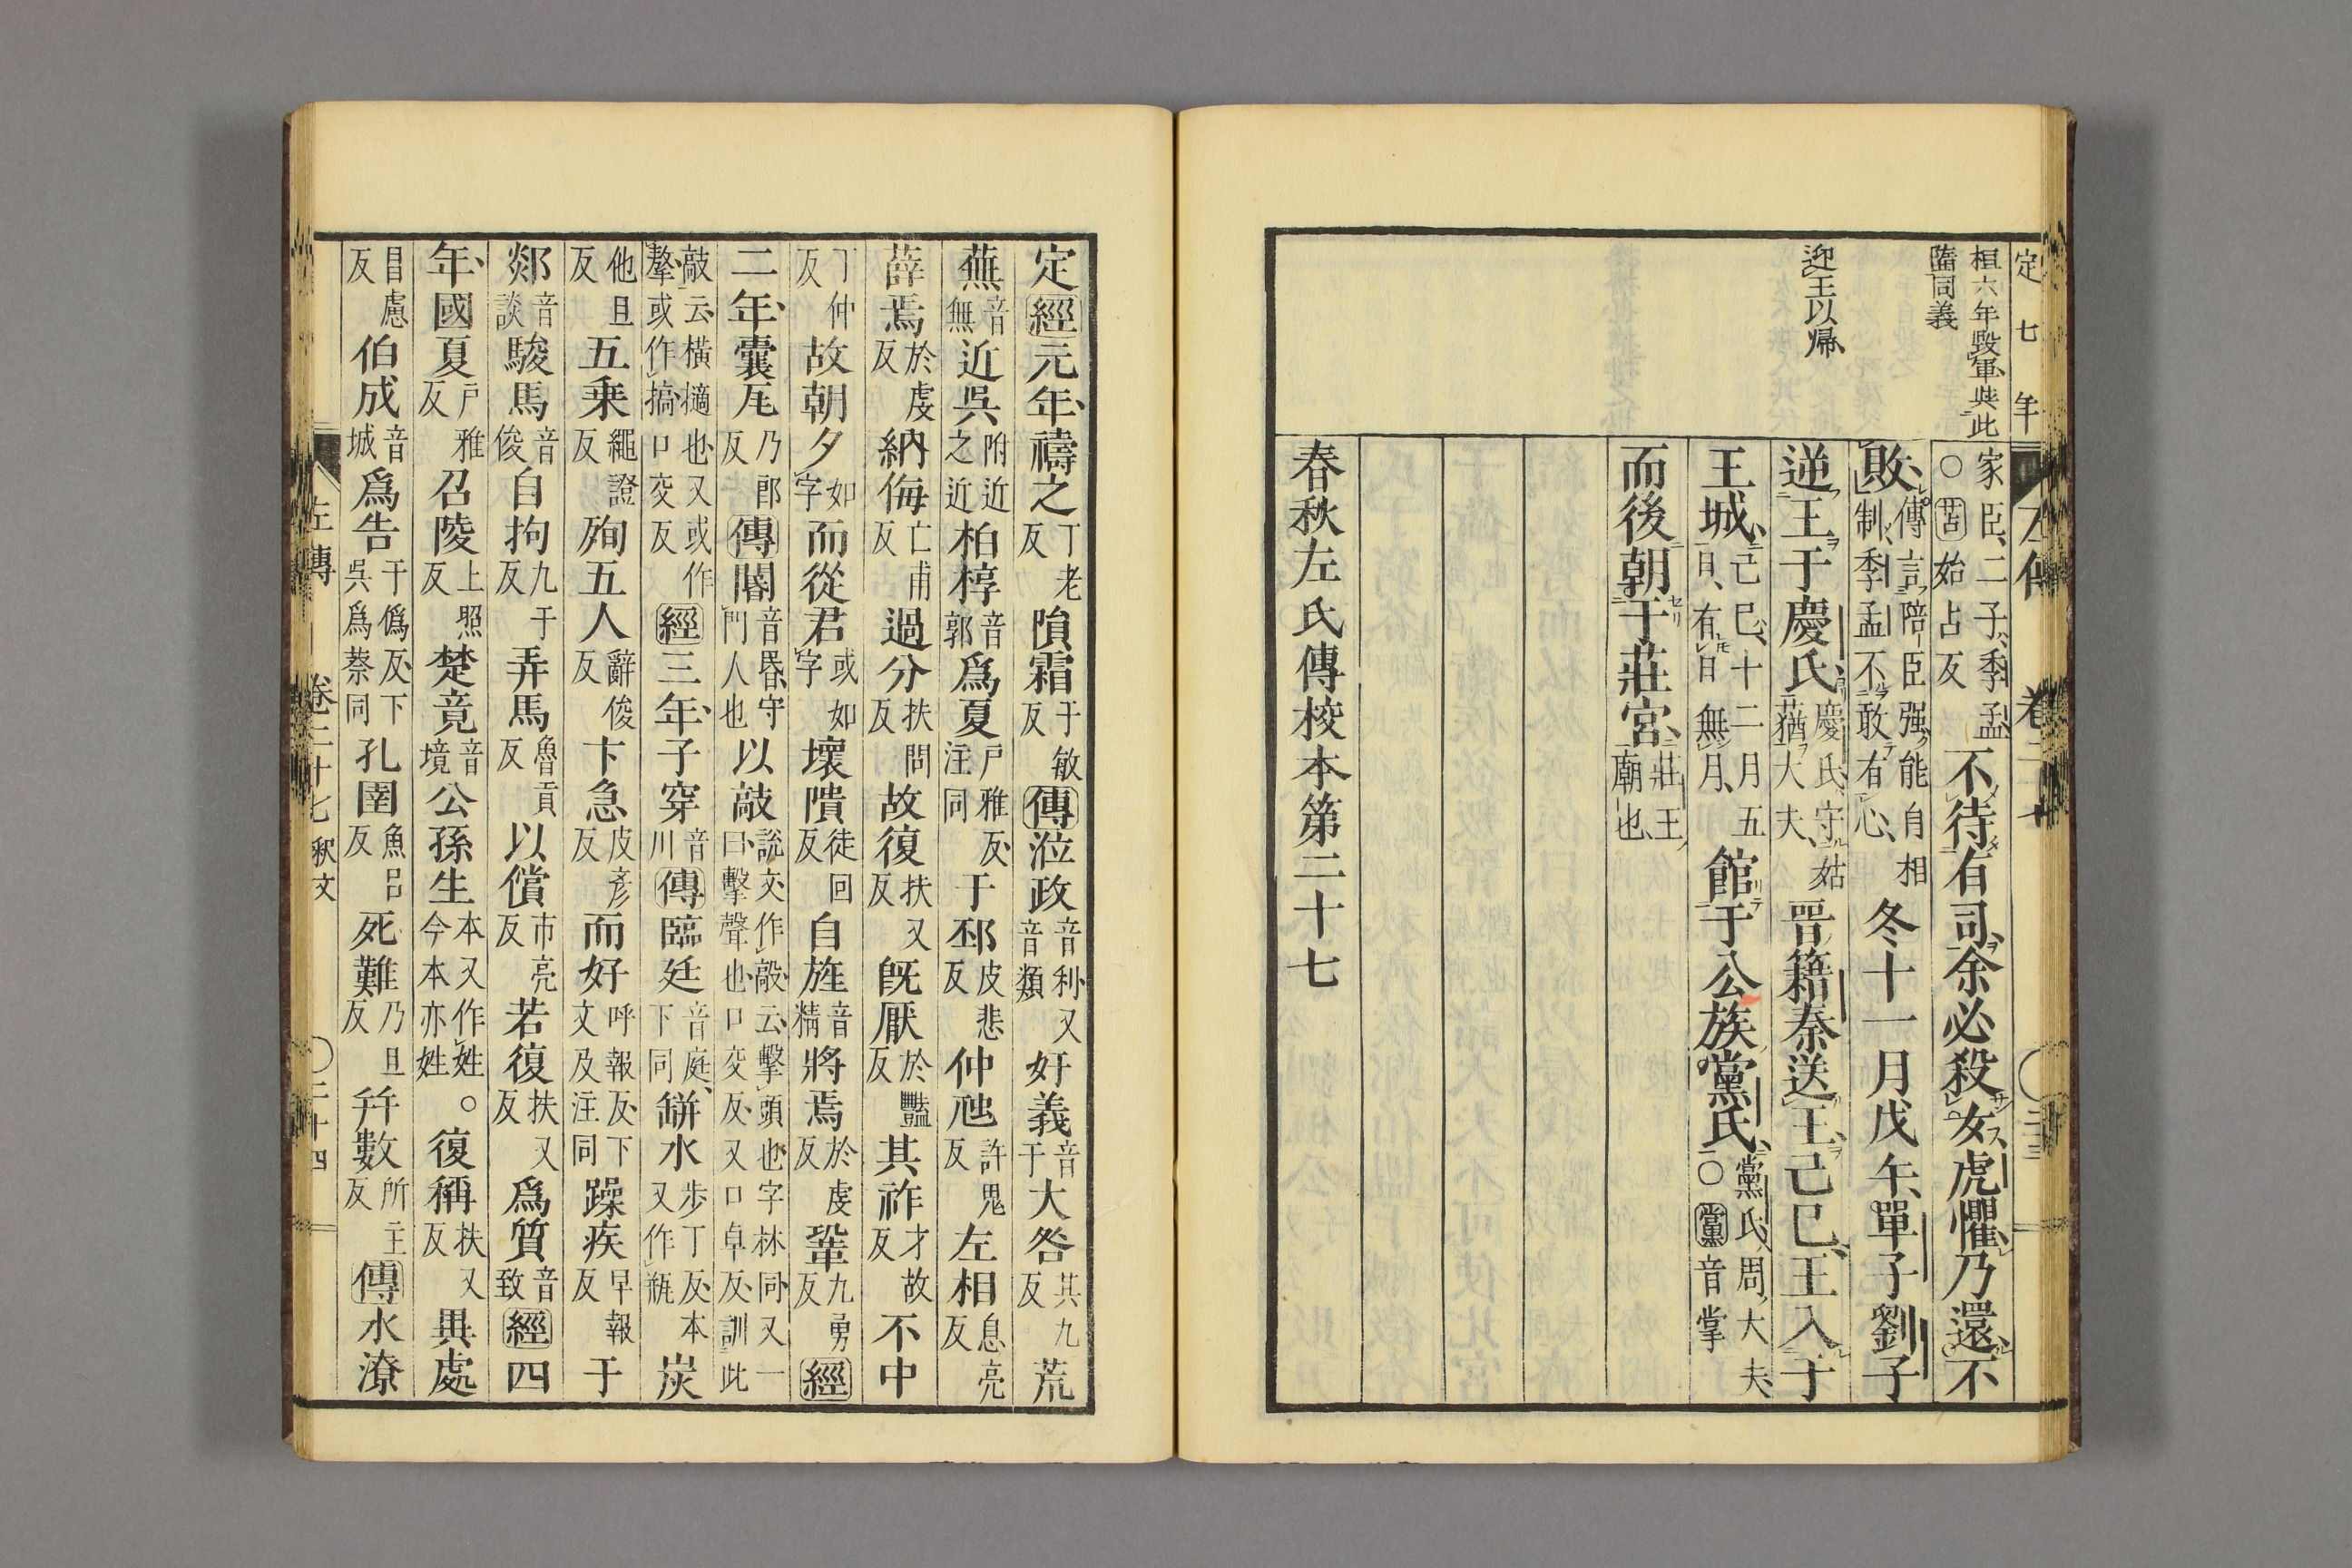 定七年
桓六年毀軍與此
同義
迎王以帰
家臣、二子、季孟、○苫始占反不待有司余必殺女虎懼乃還不
敗傳言陪臣强能自相制季孟不敢有心冬十一月戊午單子劉子
逆王于慶氏慶氏守姑蕕大夫晉籍秦送王己巳王入于
王城己巳十二月五日有日無月館于公族黨氏黨氏周大夫○黨音掌
而後朝于莊宮莊王廟也
春秋左氏傳校本第二十七
定經元年禱之丁老反隕霜于敏反傳涖政音利又音類奸義音干大咎其九反荒
蕪音無近吳附近之近柏椁音郭爲夏戶雅反注同于邳皮悲反仲虺許鬼反左相息亮反
薛焉於虔反納侮亡甫反過分扶問反故復扶又反旣厭於豔反其祚才故反不中
丁仲反故朝夕如字而從君或如字壞隤徒回反自旌音精將焉於虔反鞏九勇反經
二年囊瓦乃郎反傳閽音昬守門人也以敲說文作敲云擊頭也字林同又一曰擊聲也口交反又口卓反訓此
敲云橫擿也又或作搫或作搞口交反經三年子穿音川傳臨廷音庭下同缾水步丁反本又作瓶炭
他旦反五乗繩證反殉五人辭俊反卞急皮彥反而好呼報反下文及注同躁疾早報反于
郯音談駿馬音俊自拘九于反弄馬魯貢反以償市亮反若復扶又反爲質音致經四
年國夏戶雅反召陵上照反楚竟音境公孫生本又作姓今本亦姓。復稱扶又反畀處
昌慮反伯成音城爲告于僞反下吳爲蔡同孔圉魚呂反死難乃旦反千數所主反傳水潦
左傳 卷二十七 釈文 ○二十四